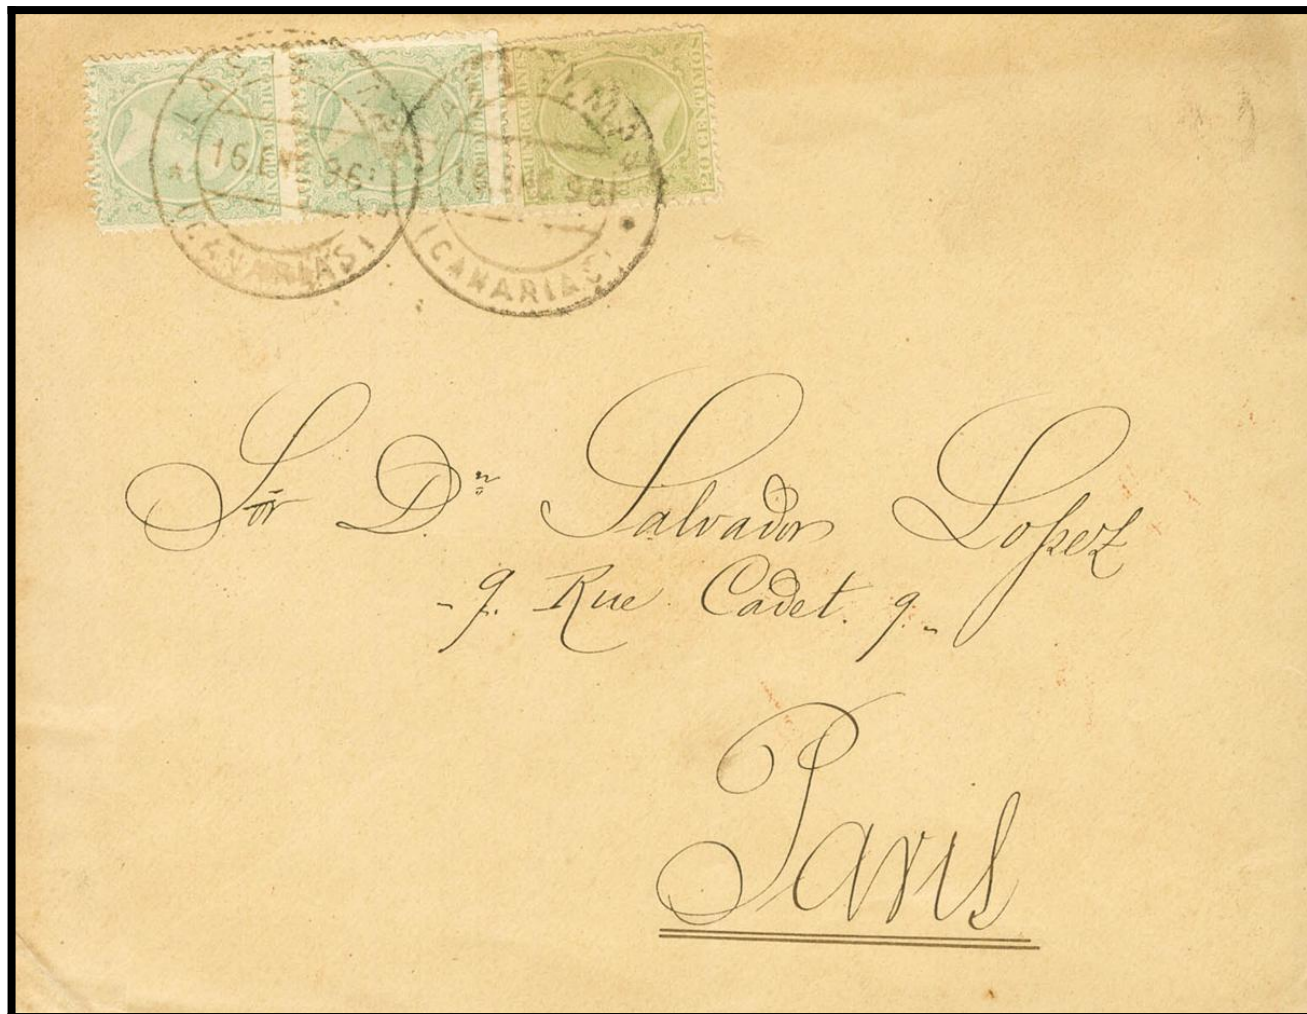 16.ENE 96
(CANARIAS)
LAS PALMAS
16 ENE 96
(CANARIAS)
20 CENTIMOS
Sōr D.ⁿ Salvador Lopez
- 9. Rue Cadet. 9. -
Paris